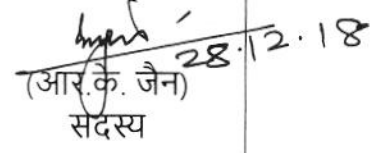 28.12.18
(आर.के. जैन)
सदस्य